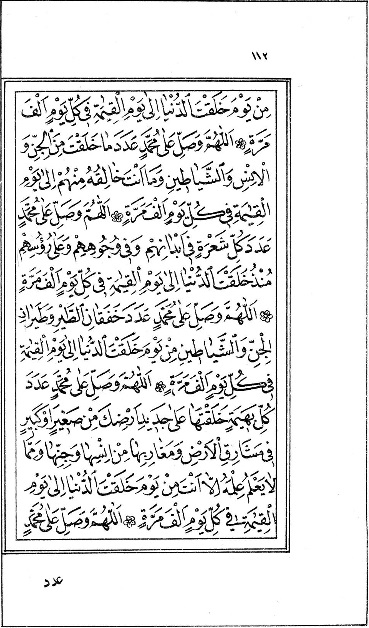 ١١٢
مِنْ يَوْمِ خَلَقْتَ الدُّنْيَا اِلٰى يَوْمِ الْقِيٰمَةِ فِىْ كُلِّ يَوْمٍ اَلْفَ
مَرَّةٍ ۞ اَللّٰهُمَّ وَصَلِّ عَلٰى مُحَمَّدٍ عَدَدَ مَا خَلَقْتَ مِنَ الْجِنِّ وَ
الْاِنْسِ وَالشَّيَاطِيْنِ وَمَا اَنْتَ خَالِقُهٗ مِنْهُمْ اِلٰى يَوْمِ
الْقِيٰمَةِ فِىْ كُلِّ يَوْمٍ اَلْفَ مَرَّةٍ ۞ اَللّٰهُمَّ وَصَلِّ عَلٰى مُحَمَّدٍ
عَدَدَ كُلِّ شَعْرَةٍ فِىْ اَبْدَانِهِمْ وَفِىْ وُجُوْهِهِمْ وَعَلٰى رُؤُسِهِمْ
مُنْذُ خَلَقْتَ الدُّنْيَا اِلٰى يَوْمِ الْقِيٰمَةِ فِىْ كُلِّ يَوْمٍ اَلْفَ مَرَّةٍ
۞ اَللّٰهُمَّ وَصَلِّ عَلٰى مُحَمَّدٍ عَدَدَ خَفَقَانِ الطَّيْرِ وَطَيَرَانِ
الْجِنِّ وَالشَّيَاطِيْنِ مِنْ يَوْمِ خَلَقْتَ الدُّنْيَا اِلٰى يَوْمِ الْقِيٰمَةِ
فِىْ كُلِّ يَوْمٍ اَلْفَ مَرَّةٍ ۞ اَللّٰهُمَّ وَصَلِّ عَلٰى مُحَمَّدٍ عَدَدَ
كُلِّ بَهِيْمَةٍ خَلَقْتَهَا عَلٰى جَدِيْدِ اَرْضِكَ مِنْ صَغِيْرٍ اَوْ كَبِيْرٍ
فِىْ مَشَارِقِ الْاَرْضِ وَمَغَارِبِهَا مِنْ اِنْسِهَا وَجِنِّهَا وَمِمَّا
لَا يَعْلَمُ عِلْمَهٗ اِلَّا اَنْتَ مِنْ يَوْمِ خَلَقْتَ الدُّنْيَا اِلٰى يَوْمِ
الْقِيٰمَةِ فِىْ كُلِّ يَوْمٍ اَلْفَ مَرَّةٍ ۞ اَللّٰهُمَّ وَصَلِّ عَلٰى مُحَمَّدٍ
عدد